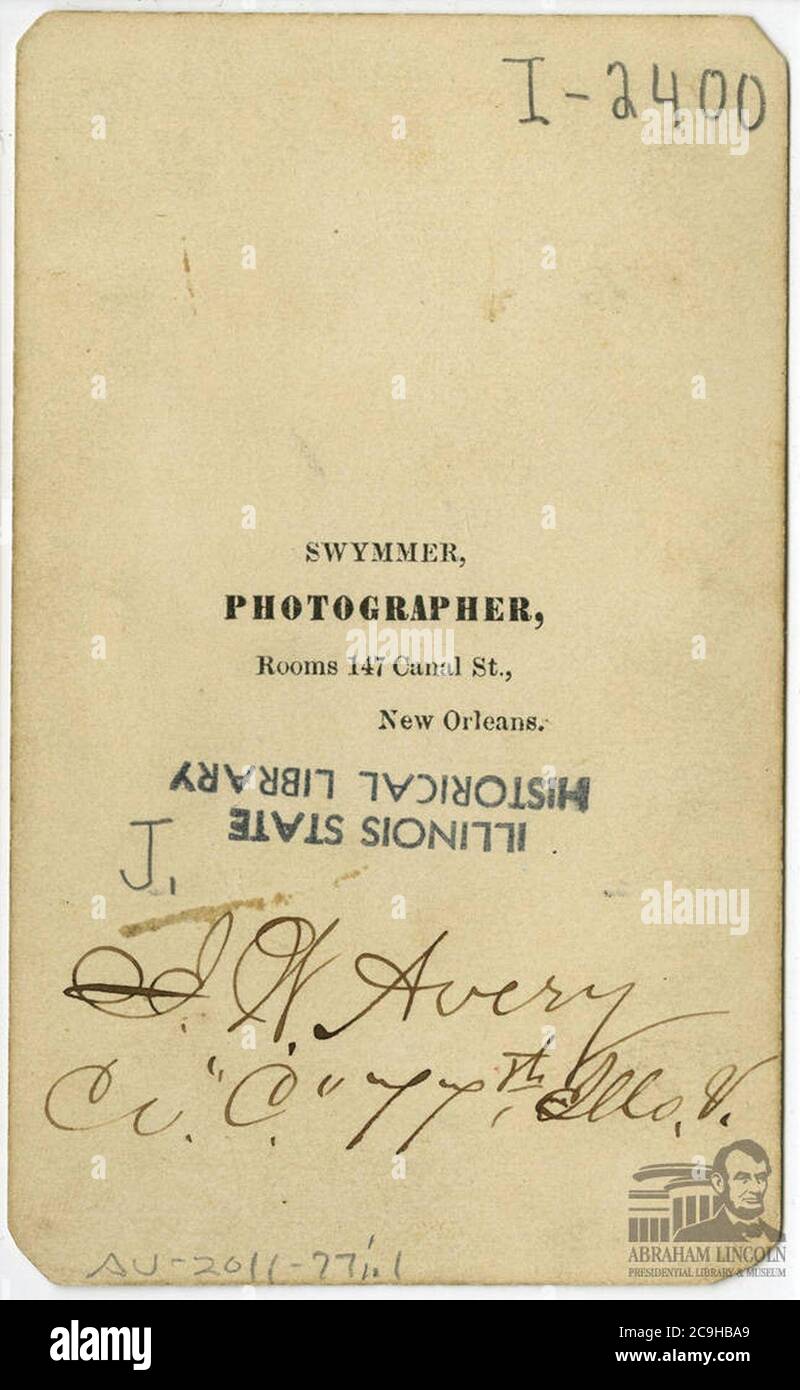 I-2400
SWYMMER,
PHOTOGRAPHER,
Rooms 147 Canal St.,
New Orleans.
ILLINOIS STATE
HISTORICAL LIBRARY
W. Avery
Co. "C." 77th, Ills. V.
ABRAHAM LINCOLN
PRESIDENTIAL LIBRARY & MUSEUM
a alamy
alamy
Image ID: 2C9HBA9
www.alamy.com